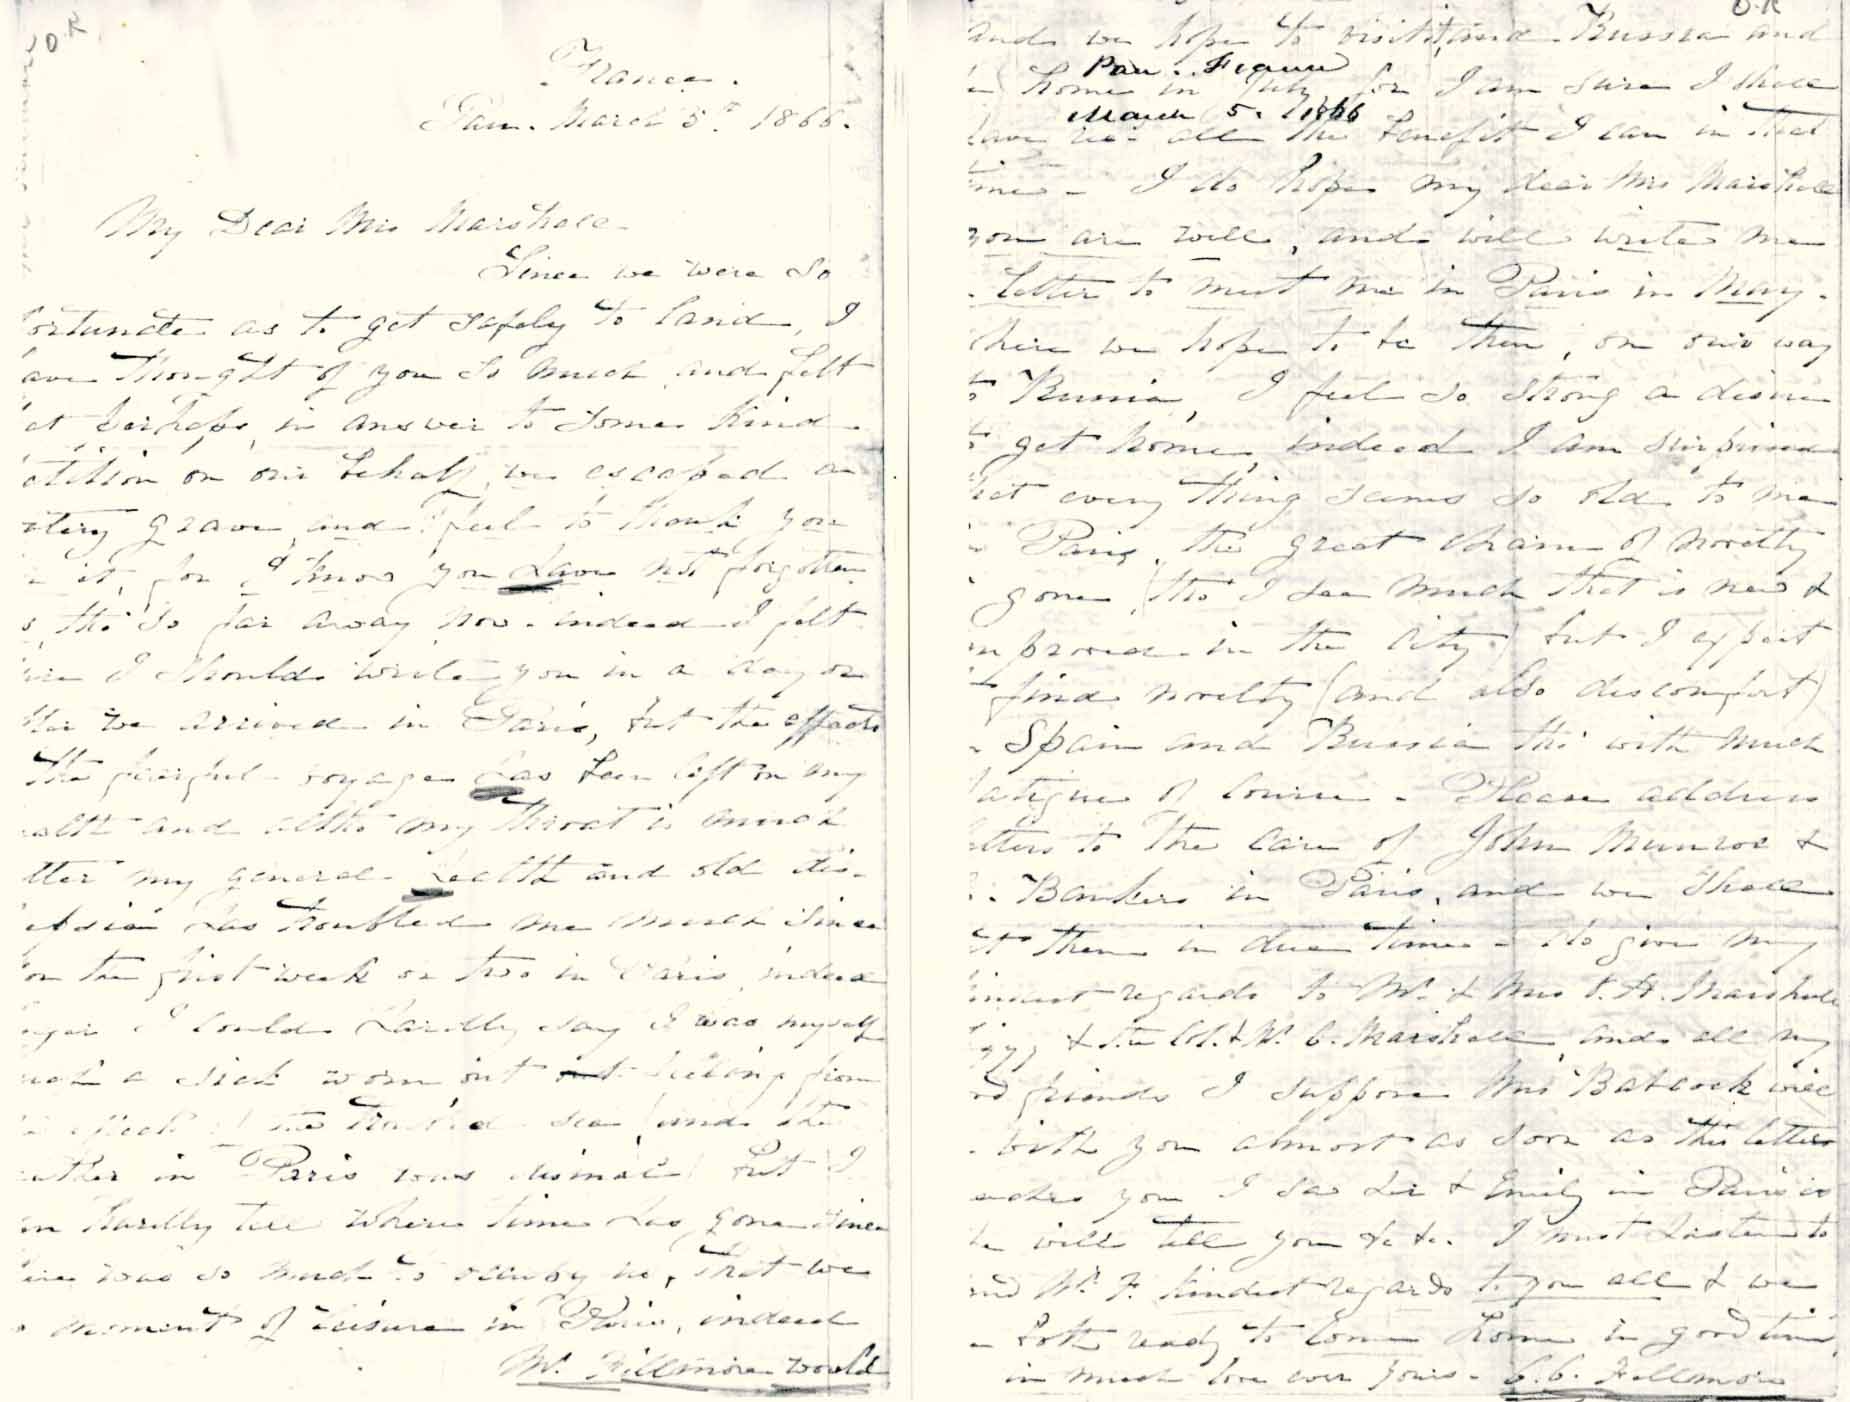 O.K
France.
Pau. March 5th 1866.
My Dear Mrs Marshall
Since we were so
ortunate as to get safely to land, I
ave thought of you so much and felt
at perhaps, in answer to some kind
etition on our behalf, we escaped a
atery grave, and feel to thank you
it, for I know you have not forgotten
s tho' so far away now. indeed I felt
I should write you in a day or
we arrived in Paris, but the effects
the fearful voyage has been left on my
ealth and altho my throat is much
tter my general health and old dis-
has troubled me much since
on the first week or two in Paris, indeed
I could hardly say I was myself
a sick worn out being from
effect of the troubled sea, and the
eather in Paris was dismal, but I
an hardly tell where time has gone since
ere was so much to occupy us, that we
moment of leisure in Paris, indeed
Mr. Fillmore would
O.K
and we hope to visit it, and Russia and
Pau. France
home in July for I am sure I shall
March 5. 1866
have all the benefit I can in that
ime - I do hope my dear Mrs Marshall
you are well, and will write me
letter to meet me in Paris in May.
where we hope to be then, on our way
to Russia, I feel so strong a desire
to get home, indeed I am surprised
hat every thing seems so old to me
in Paris, the great charm of novelty
gone, (tho I see much that is new &
improved in the City) but I expect
find novelty (and also discomfort)
Spain and Russia tho' with much
fatigue of course - Please address
etters to the care of John Munroe &
Bankers in Paris, and we shall
them in due time - do give my
kindest regards to Mr. & Mrs O. H. Marshall
& the Col. & Mr. C. Marshall, and all my
friends I suppose Mrs Babcock will
with you almost as soon as this letter
eaches you I saw her & Emily in Paris as
he will tell you &c &c. I must hasten to
Mr. F. kindest regards to you all & we
both ready to come home in good time,
in much love ever yours - C. C. Fillmore